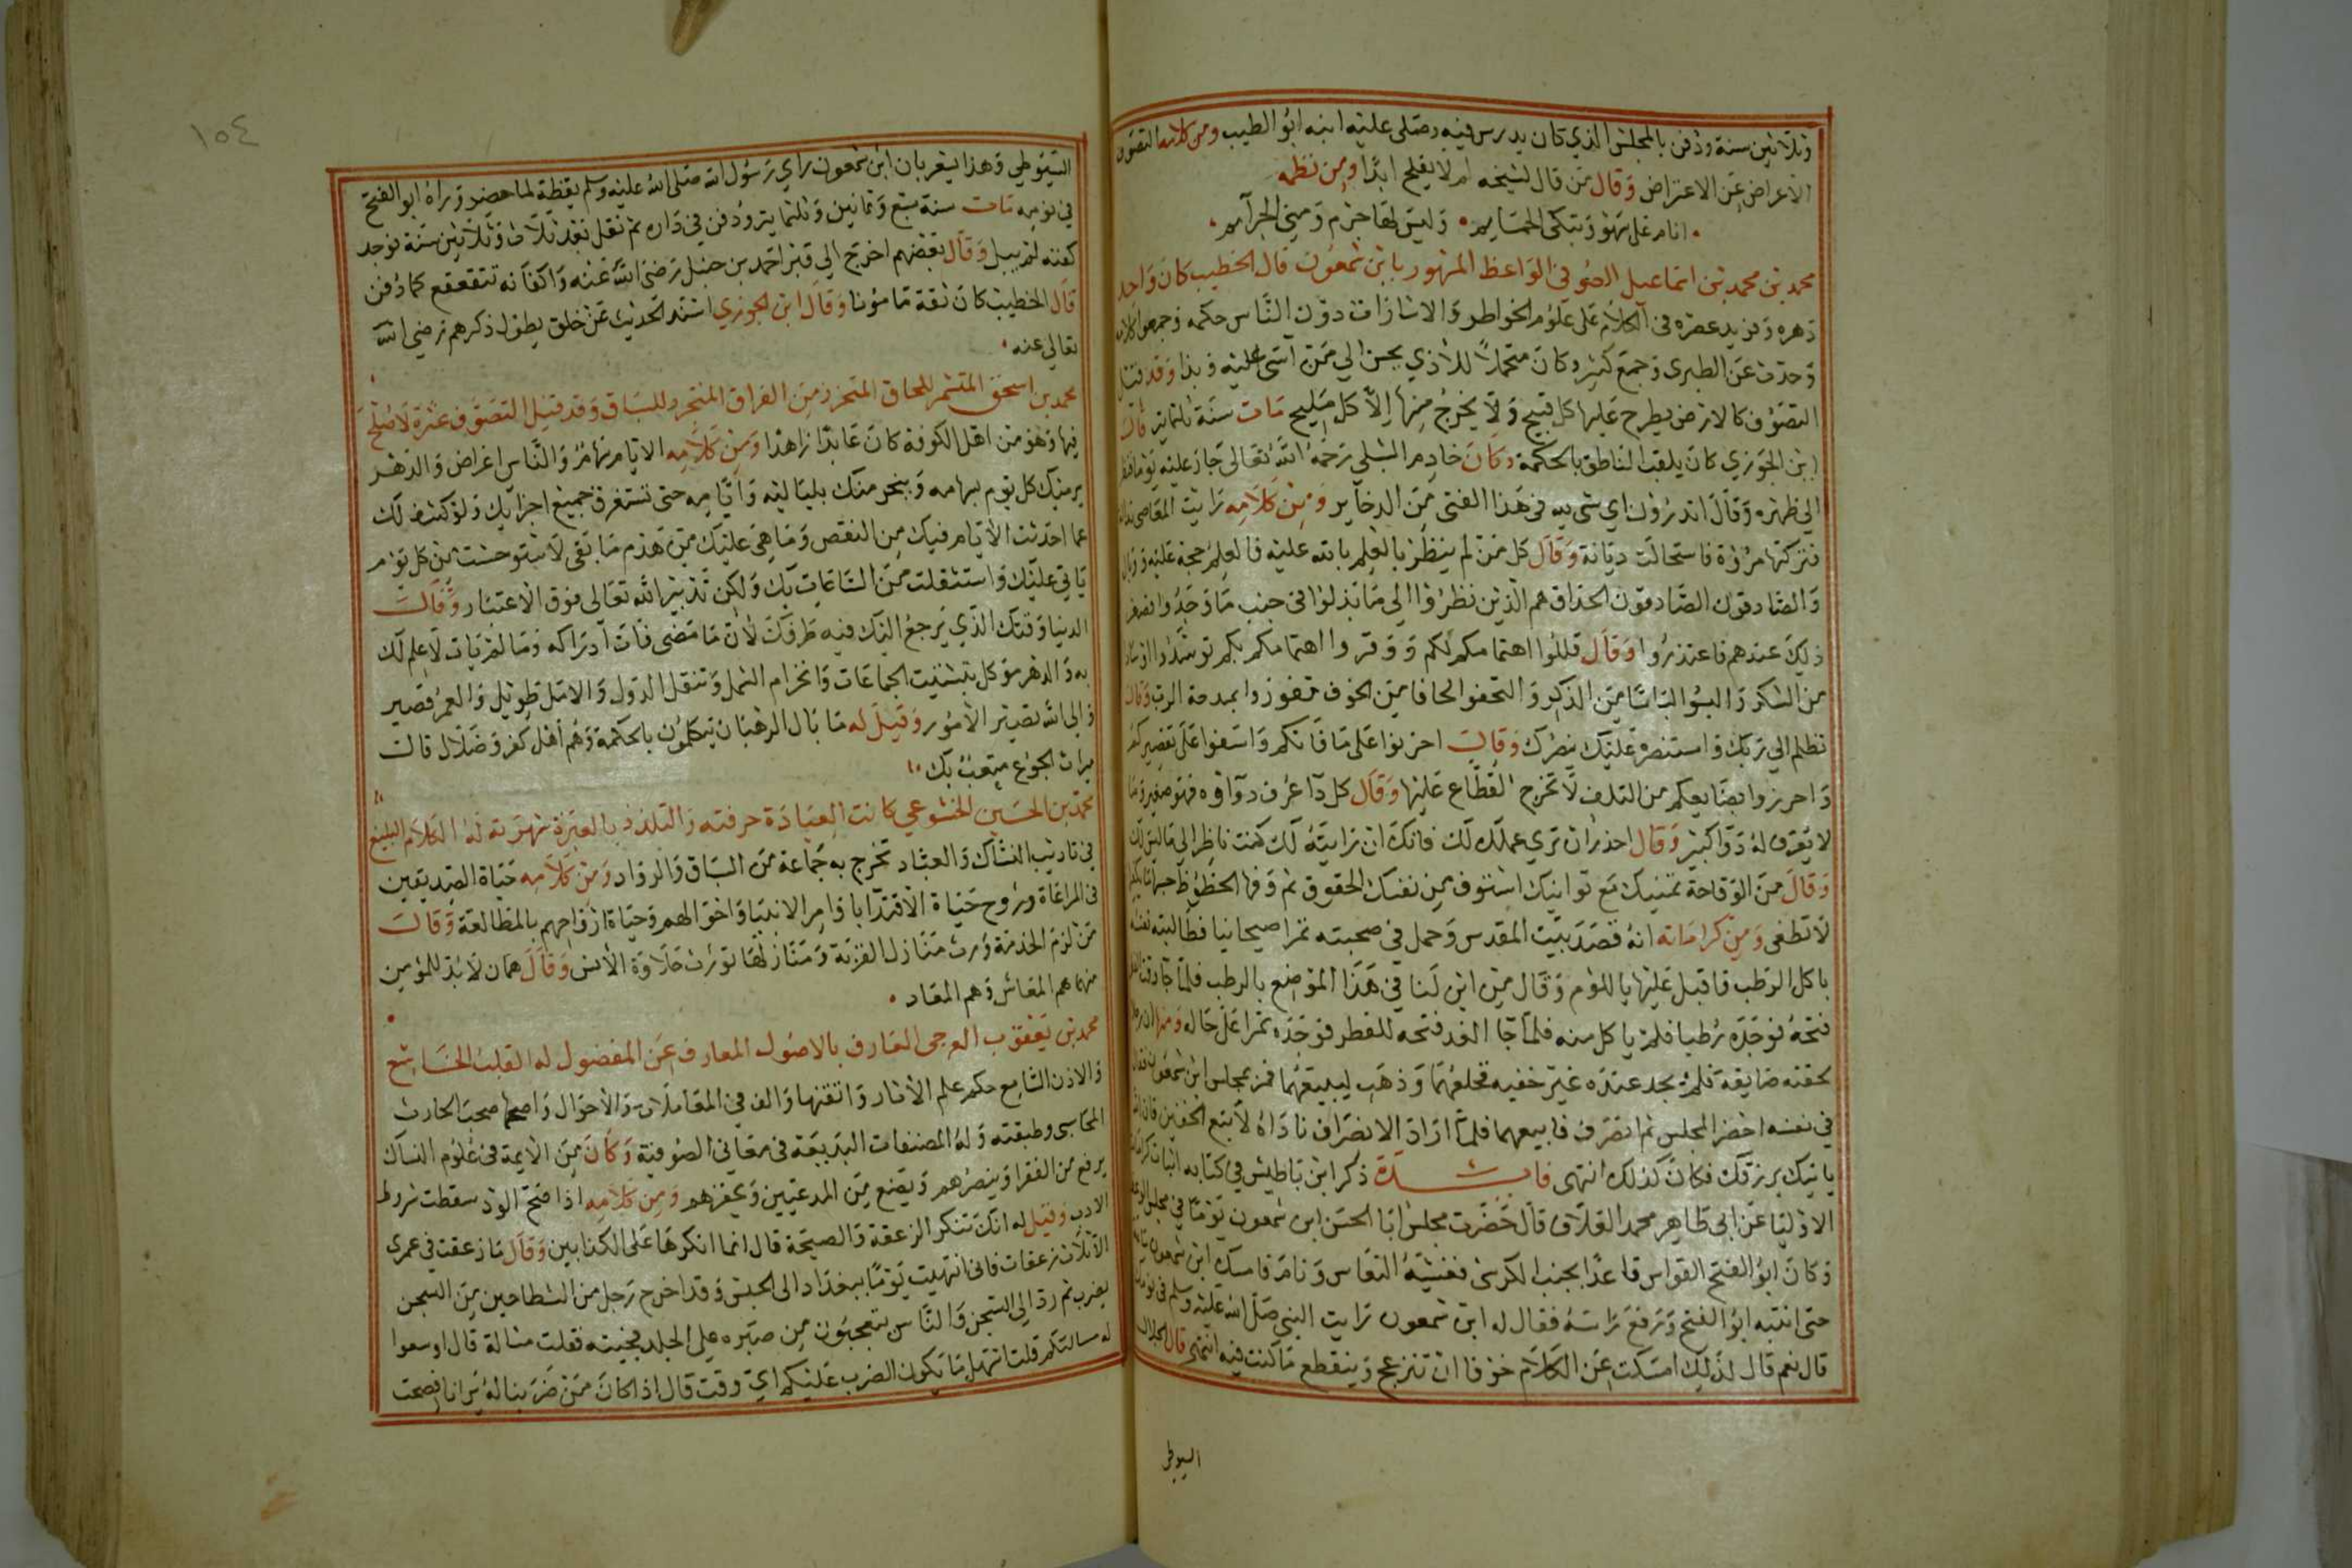 وثلاثين سنة ودفن بالمجلس الذي كان يدرس فيه وصلى عليه ابنه ابو الطيب ومن كلامه التصوف
الاعراض عن الاعتراض وقال من قال لشيخه لم لا يفلح ابدا ومن نظمه
انام على سهو وتبكي الحمايم وليس لها جرم ومني الجرايم
محمد بن محمد بن اسماعيل الصوفي الواعظ المشهور بابن شمعون قال الخطيب كان واحد
دهره وفريد عصره في الكلام على علوم الخواطر والاشارات دون الناس حكمه وجمعوا كلامه
وحدث عن الطبري وجمع كثير وكان متحملا للاذي يحسن الي من اسى عليه وقد
التصوف كالارض يطرح عليها كل قبيح ولا يخرج منها الا كل مليح مات سنة ثلثماية قال
ابن الجوزي كان يلقب الناطق بالحكمة وكان خادم الشبلي رحمه الله تعالى جاز عليه يوما فنظر
الي ظهره وقال اتدرون اي شي لله في هذا الفتى من الدخاير ومن كلامه رايت المعاصي نذالة
فتركتها مروة فاستحالت ديانة وقال كل من لم ينظر بالعلم بالله عليه فالعلم حجة عليه ووبال
والصادقون الصادقون الحذاق هم الذين نظروا الي ما بذلوا في جنب ما وجدوا فصغر
ذلك عندهم فاعتذروا وقال قللوا اهتمامكم لكم ووفروا اهتمامكم بكم توسدوا
من الشكر والبسوا لباسا من الذكر والتحفوا لحافا من الخوف تفوزوا بمدحة الرب وقال
تظلم الي ربك واستنصره عليك ينصرك وقال احزنوا على ما فاتكم واسفوا على تقصيركم
واحرزوا بضايعكم من التلف لا تخرج القطاع عليها وقال كل دا عرف دواوه فهو صغير وما
لا يعرف له دوا كبير وقال احذر ان تري عملك لك فانك ان رايته لك كنت ناظرا الي ما ليس لك
وقال من الوقاحة تمنيك مع توانيك استوف من نفسك الحقوق ثم وفها الحظوظ
لا تطفى ومن كراماته انه قصد بيت المقدس وحمل في صحبته تمرا صيحانيا فطالبته نفسه
باكل الرطب فاقبل عليها باللوم وقال من اين لنا في هذا الموضع بالرطب فلما جا وقت الفطر
فتحه فوجده رطبا فلم ياكل منه فلما جا الغد فتحه للفطر فوجده تمرا على حاله ومنها ان رجلا
لحقته ضايقة فلم يجد عنده غير خفيه فخلعهما وذهب ليبيعهما فمر بمجلس ابن شمعون فقال
في نفسه احضر المجلس ثم انصرف فابيعهما فلما اراد الانصراف ناداه لا تبع الخفين فان الله
ياتيك برزقك فكان كذلك انتهى فايدة ذكر ابن باطيش في كتابه اثبات كرامات
الاوليا عن ابي طاهر محمد العلاف قال حضرت مجلس ابا الحسن ابن شمعون يوما في مجلس الوعظ
وكان ابو الفتح القواس قاعدا بجنب الكرسي فغشيه النعاس ونام فامسك ابن شمعون
حتى انتبه ابو الفتح ورفع راسه فقال له ابن شمعون رايت النبي صلى الله عليه وسلم في نومك
قال نعم قال لذلك امسكت عن الكلام خوفا ان تنزعج وينقطع ما كنت فيه انتهى قال الجلال
السيوطي
السيوطي وهذا يشعر بان ابن شمعون راي رسول الله صلى الله عليه وسلم يقظة لما حضر وراه ابو الفتح
في نومه مات سنة سبع وثمانين وثلثماية ودفن في داره ثم نقل بعد ثلاث وثلاثين سنة فوجد
كفنه لم يبل وقال بعضهم اخرج الي قبر احمد بن حنبل رضي الله عنه واكفانه تتقعقع كما دفن
قال الخطيب كان ثقة مامونا وقال ابن الجوزي اسند الحديث عن خلق يطول ذكرهم رضي الله
تعالي عنه
محمد بن اسحق المتشمر للحاق المتحرز من الفراق المنجرد للسباق وقد قيل التصوف عثرة لا صلح
فيها وهو من اهل الكوفة كان عابدا زاهدا ومن كلامه الايام سهام والناس اغراض والدهر
يرميك كل يوم بسهامه ويتخرمك بلياليه وايامه حتى تستغرق جميع اجزايك ولو كشف لك
عما احدثت الايام فيك من النقص وما هي عليك من هدم ما بقى لاستوحشت من كل يوم
ياتي عليك واستثقلت ممر الساعات بك ولكن تدبير الله تعالى فوق الاعتبار وقال
الدنيا وقتك الذي يرجع اليك فيه طرفك لان ما مضى فات ادراكه وما لم يات لا علم لك
به والدهر موكل بتشتيت الجماعات وانخرام الشمل وتنقل الدول والامل طويل والعمر قصير
والى الله تصير الامور وقيل له ما بال الرهبان يتكلمون بالحكمة وهم اهل كفر وضلال قال
ميراث الجوع متعت بك
محمد بن الحسين الخشوعي كانت العبادة حرفته والتلذذ بالعبرة شهرته له الكلام البليغ
في تاديب النساك والعباد تخرج به جماعة من السباق والرواد ومن كلامه حياة الصديقين
في المراعاة وروح حياة الاقتدا باوامر الانبيا واحوالهم وحياة ارواحهم بالمطالعة وقال
من لزم الخدمة ورث منازل القربة ومنازلها تورث حلاوة الانس وقال همان لا بد للمومن
منهما هم المعاش وهم المعاد
محمد بن يعقوب العرجى العارف بالاصول المعارف عن المفضول له القلب الخاشع
والاذن السامع حكم علم الاثار واتقنها والف في المعاملات والاحوال واصحها صحب الحارث
المحاسبى وطبقته وله المصنفات البديعة في معاني الصوفية وكان من الايمة في علوم النساك
يرفع من الفقرا وينصرهم ويضع من المدعيين ويحقرهم ومن كلامه اذا صح الود سقطت شروط
الادب وقيل له انك تنكر الزعقة والصيحة قال انما انكرها على الكذابين وقال ما زعقت في عمرى
الا ثلاث زعقات فاني انتهيت يوما ببغداد الى الحبس وقد اخرج رجل من الشطاحين من السجن
يضرب ثم رد الي السجن والناس يتعجبون من صبره على الجلد فجيته فقلت مسالة قال اوسعوا
له مسالتكم قلت اسهل ما يكون الضرب عليكم اي وقت قال اذا كان من ضربنا له يرانا فصحت
١٠٤